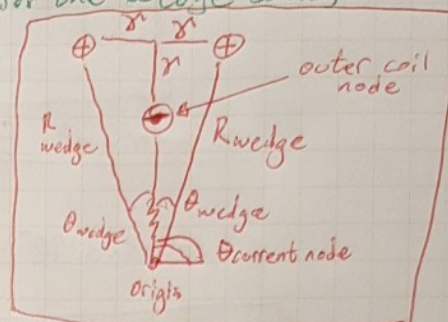 r r
r
outer coil
node
R
wedge
Rwedge
θwedge
θwedge
θcurrent node
origin